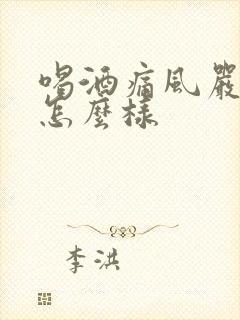 喝酒痛風嚴
怎麼樣
李洪